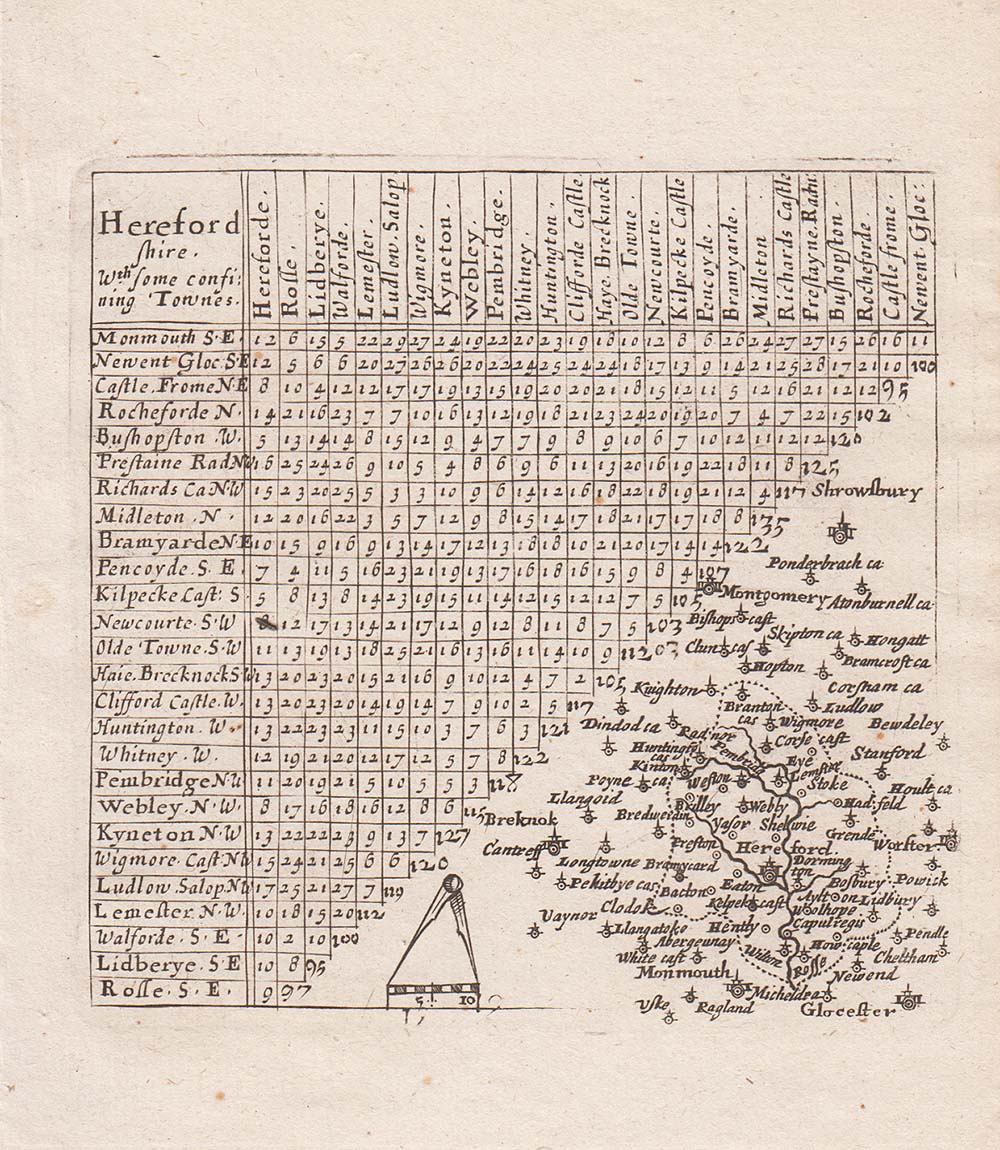 Hereford
shire.
Wth some confi:
ning Townes.
Hereforde.
Rosse.
Lidberye.
Walforde.
Lemester.
Ludlow.Salop
Wigmore.
Kyneton.
Webley.
Pembridge.
Whitney.
Huntington.
Clifforde Castle
Haye.Brecknock
Olde Towne.
Newcourte.
Kilpecke Castle
Pencoyde.
Bramyarde.
Midleton
Richards Castle
Prestayne.Radn:
Bushopston.
Rocheforde.
Castle frome.
Newent.Gloc:
Monmouth S.E 12 6 15 5 22 29 27 24 19 22 20 23 19 18 10 12 8 6 26 24 27 27 15 26 16 11
Newent Gloc.S.E 12 5 6 6 20 27 26 26 20 22 24 25 24 24 18 17 13 9 14 21 25 28 17 21 10 100
Castle.Frome N.E 8 10 4 12 12 17 17 19 13 15 19 20 20 21 18 15 12 11 5 12 16 21 12 12 95
Rocheforde N. 14 21 16 23 7 7 10 16 13 12 19 18 21 23 24 20 19 20 7 4 7 22 15 102
Bushopston .W. 5 13 14 14 8 15 12 9 4 7 7 9 8 9 10 6 7 10 12 11 12 12 120
Prestaine Rad NW 16 25 24 26 9 10 5 4 8 6 9 6 11 13 20 16 19 22 18 11 8 125
Richards Ca N.W 15 23 20 25 5 3 3 10 9 6 14 12 16 18 22 18 19 21 12 4 117
Midleton .N . 12 20 16 22 3 5 7 12 9 8 15 14 17 18 21 17 17 18 8 135
Bramyarde N.E 10 15 9 16 9 13 14 17 12 13 18 18 10 21 20 17 14 14 122
Pencoyde.S.E. 7 4 11 5 16 23 21 19 13 17 16 18 16 15 9 8 4 107
Kilpecke Cast: S 5 8 13 8 14 23 19 15 11 14 12 15 12 12 7 5 105
Newcourte.S.W 8 12 17 13 14 21 17 12 9 12 8 11 8 7 5 103
Olde Towne.S.W 11 13 19 13 18 25 21 16 13 16 11 14 10 9 112
Haie.Brecknock SW 13 20 23 20 15 21 16 9 10 12 4 7 2 105
Clifford Castle.W. 13 20 23 20 14 19 14 7 9 10 2 5 117
Huntington W. 13 22 23 23 11 15 10 3 7 6 3 121
Whitney.W. 12 19 21 20 12 17 12 5 7 8 122
Pembridge N.W 11 20 19 21 5 10 5 5 3 118
Webley.N.W. 8 17 16 18 16 12 8 6 115
Kyneton N.W 13 22 22 23 9 13 7 127
Wigmore Cast NW 15 24 21 25 6 6 120
Ludlow.Salop.NW 17 25 21 27 7 119
Lemester.N.W. 10 18 15 20 112
Walforde.S.E 10 2 10 100
Lidberye.S.E 10 8 95
Rosse.S.E. 9 97
5 10
Shrowsbury
Ponderbach ca
Montgomery
Atonburnell ca
Bishops cast
Skipton ca
Hongatt
Clun cas
Bramcroft ca
Hopton
Corsham ca
Knighton
Ludlow
Branton
cas
Wigmore
Bewdeley
Dindod ca
Radnor
Corse cast
Stanford
Huntingt
cas
Pembrid
Eye
Kinton
Lemster
Poyne ca
Weston
Stoke
Hoult ca
Llangoid
Brilley
Webly
Had:feld
Bredwerdin
Breknok
Yasor
Shelwie
Grende
Cantreff
Preston
Hereford.
Worster
Longtowne
Bramycard
Dorming
ton
Bosbury
Powick
Pekitbye cas
Bacton
Eaton
Aylton
Lidbury
Clodok
Kelpek cast
Woolhope
Vaynor
Llangatoke
Hently
Caput regis
Pendle
Abergeunay
How caple
Cheltham
White cast
Wilton
Rosse
Newend
Monmouth
Micheldea
Uske
Ragland
Glocester